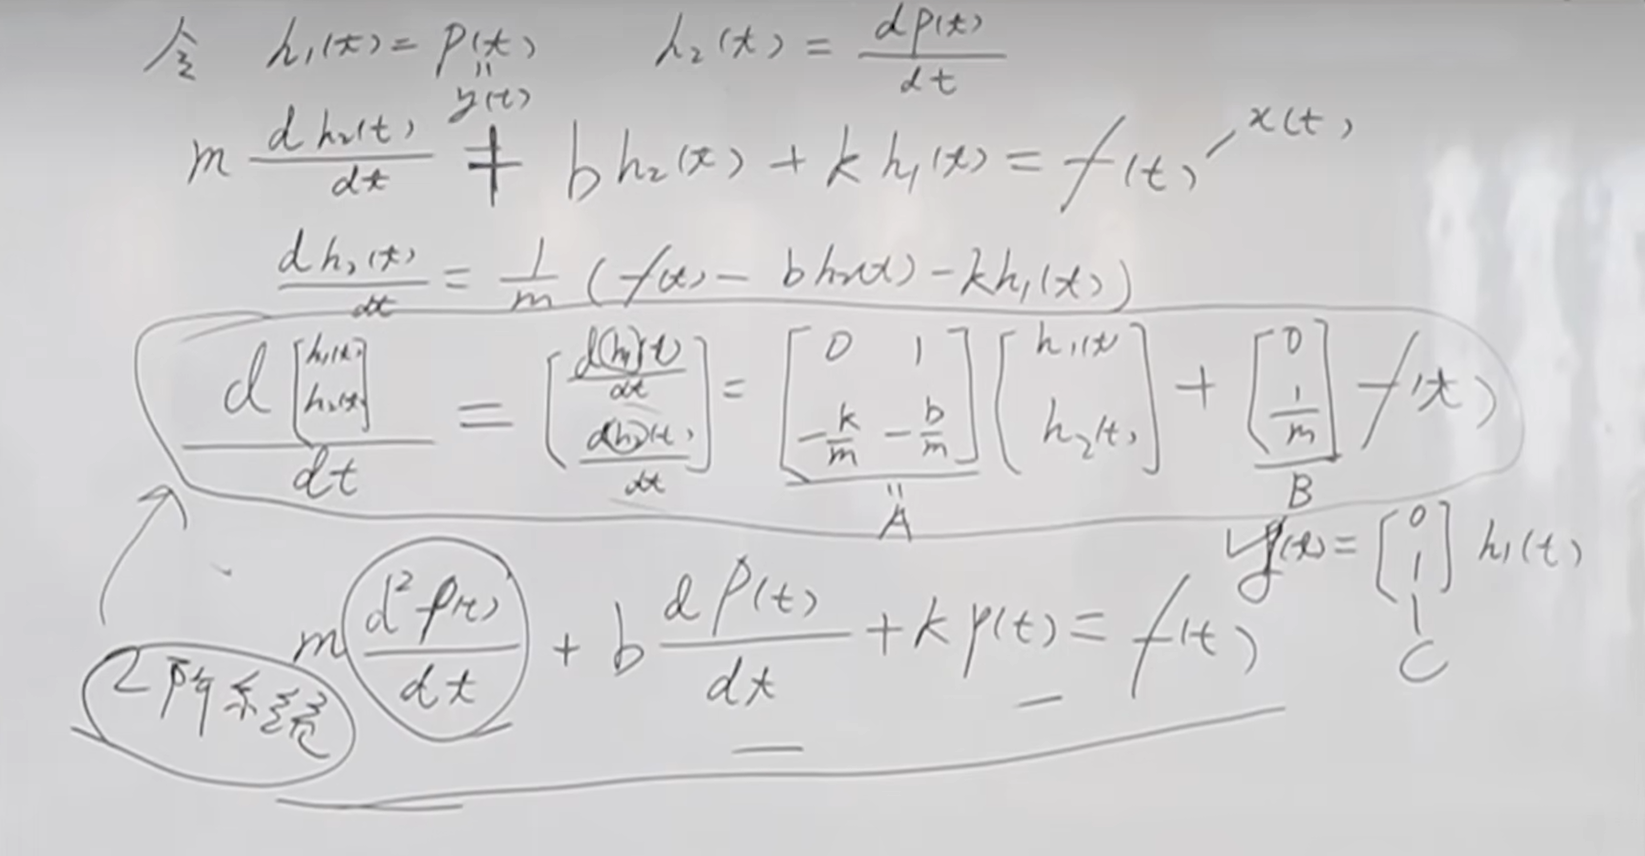 令 h₁(t) = p(t) h₂(t) = dp(t)/dt
" y(t)
m dh₂(t)/dt + b h₂(t) + k h₁(t) = f(t) x(t)
dh₂(t)/dt = 1/m (f(t) - bh₂(t) - kh₁(t))
d[h₁(t) h₂(t)]/dt = [d(h₁)(t)/dt d(h₂)(t)/dt] = [0 1 -k/m -b/m] [h₁(t) h₂(t)] + [0 1/m] f(t)
" A B
y(t) = [0 1] h₁(t)
C
m d²p(t)/dt + b dp(t)/dt + k p(t) = f(t)
2阶系统